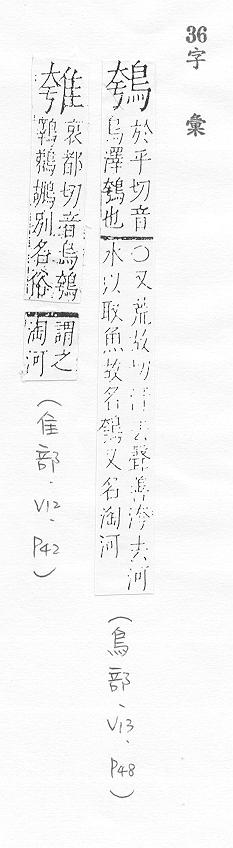 36
字彙
鴮 於乎切音烏澤鴮也○又荒故切音去聲善洿去河水以取魚故名鴮又名淘河
(鳥部、V13、P48)
䧼 哀都切音烏鴮鶘別名俗謂之淘河
(隹部、V12、P42)